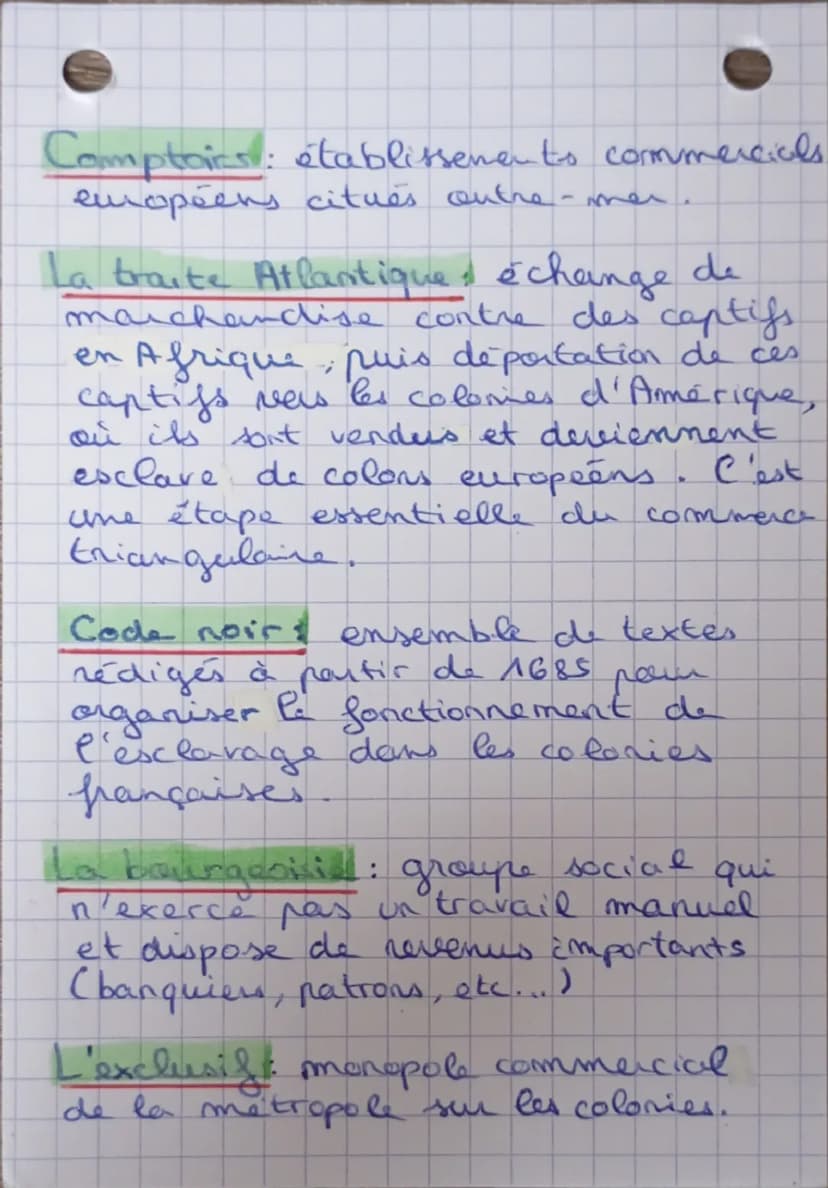 Comptoirs : établissements commercials
européens citués outre-mer.
La traite Atlantique : échange de
marchandise contre des captifs
en Afrique, puis déportation de ces
captifs vers les colonies d'Amérique,
où ils sont vendus et deviennent
esclave de colons européens. C'est
une étape essentielle du commerce
triangulaire.
Code noir : ensemble de textes
rédigés à partir de 1685 pour
organiser le fonctionnement de
l'esclavage dans les colonies
françaises.
La bourgeoisie : groupe social qui
n'exerce pas un travail manuel
et dispose de revenus importants
(banquiers, patrons, etc...)
L'exclusif : monopole commercial
de la métropole sur les colonies.